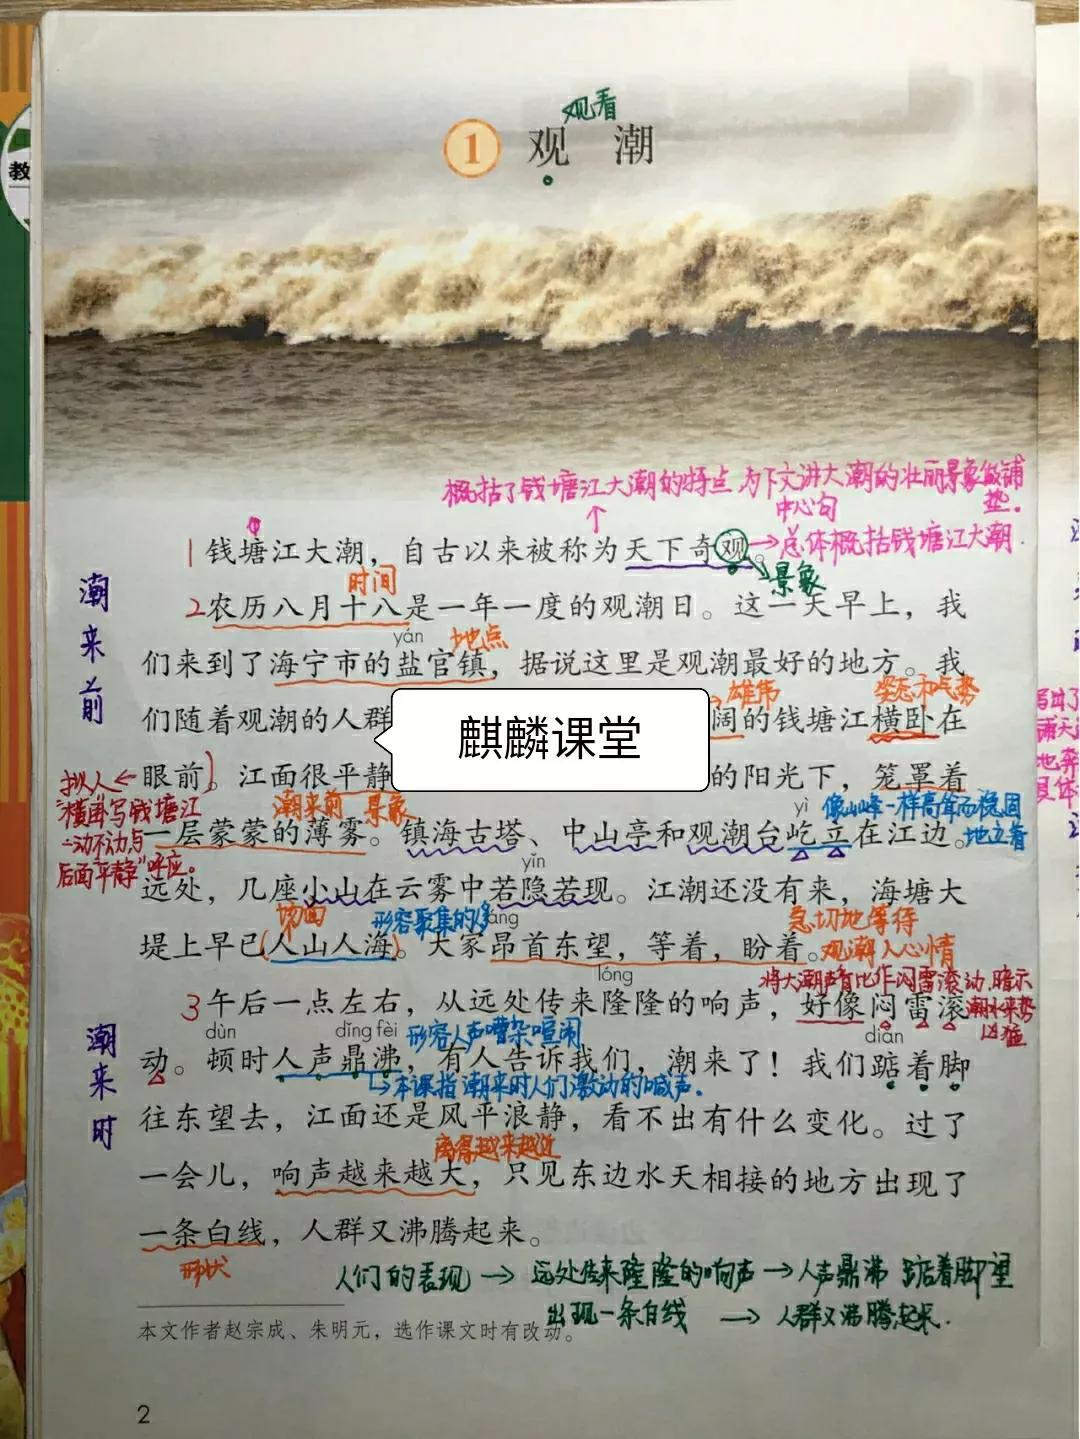 观看
1 观潮
教
概括了钱塘江大潮的特点,为下文讲大潮的壮丽景象做铺垫。
中心句
1 钱塘江大潮,自古以来被称为天下奇观。
总体概括钱塘江大潮.
景象
时间
2 农历八月十八是一年一度的观潮日。这一天早上,我
yán
地点
们来到了海宁市的盐官镇,据说这里是观潮最好的地方。我
雄伟
姿态和气势
们随着观潮的人群
阔的钱塘江横卧在
麒麟课堂
眼前。江面很平静
的阳光下,笼罩着
潮来前
拟人
"横卧"写钱塘江
一动不动与
后面"平静"呼应。
潮来前 景象
yì
像山峰一样高耸而稳固
地立着
一层蒙蒙的薄雾。镇海古塔、中山亭和观潮台屹立在江边。
yǐn
远处,几座小山在云雾中若隐若现。江潮还没有来,海塘大
场面
形容聚集的多
áng
急切地等待
堤上早已人山人海。大家昂首东望,等着,盼着。
观潮人心情
lóng
将大潮声音比作闷雷滚动,暗示
潮水来势
凶猛
3 午后一点左右,从远处传来隆隆的响声,好像闷雷滚
dùn
dǐng fèi
形容人声嘈杂喧闹
diǎn
动。顿时人声鼎沸,有人告诉我们,潮来了!我们踮着脚
潮来时
本课指潮来时人们激动的喊声.
往东望去,江面还是风平浪静,看不出有什么变化。过了
离得越来越近
一会儿,响声越来越大,只见东边水天相接的地方出现了
一条白线,人群又沸腾起来。
形状
人们的表现→远处传来隆隆的响声→人声鼎沸 踮着脚望
出现一条白线→人群又沸腾起来.
本文作者赵宗成、朱明元,选作课文时有改动。
2